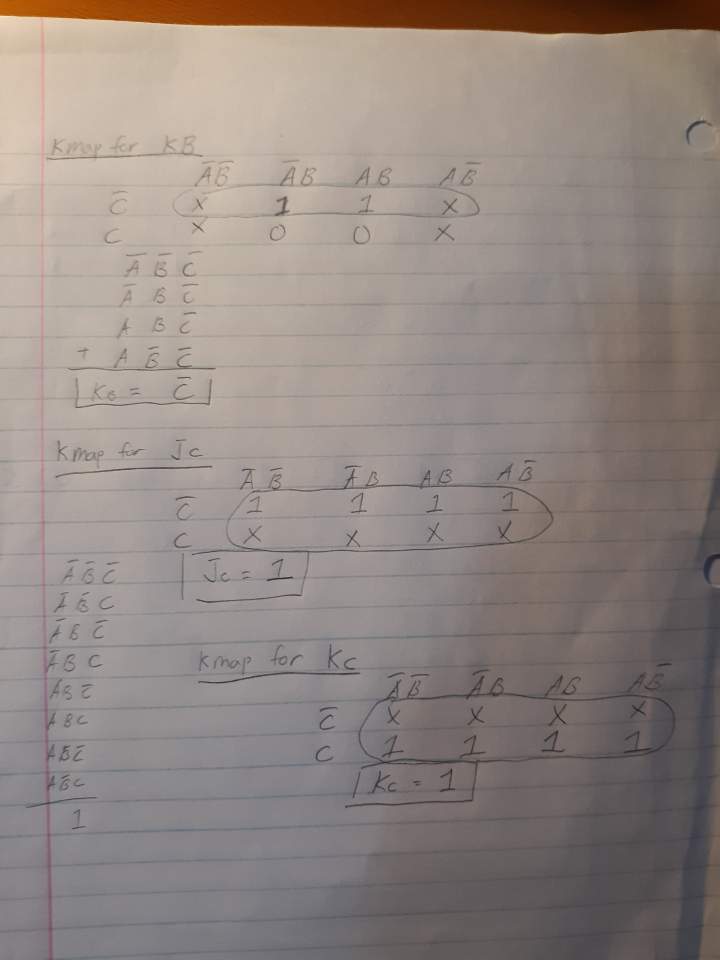 Kmap for KB
A̅ B̅ A̅ B A B A B̅
C̅ X 1 1 X
C X 0 0 X
A̅ B̅ C̅
A̅ B C̅
A B C̅
+ A B̅ C̅
KB = C̅
Kmap for Jc
A̅ B̅ A̅ B A B A B̅
C̅ 1 1 1 1
C X X X X
Jc = 1
A̅ B̅ C̅
A̅ B̅ C
A̅ B C̅
A̅ B C
A B C̅
A B C
A B̅ C̅
A B̅ C
1
Kmap for Kc
A̅ B̅ A̅ B A B A B̅
C̅ X X X X
C 1 1 1 1
Kc = 1